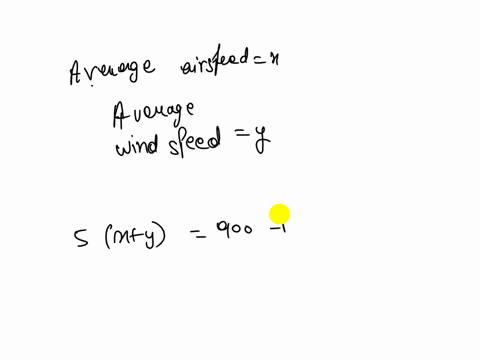 Average airspeed = x
Average
wind speed = y
5 (x+y) = 900 -1